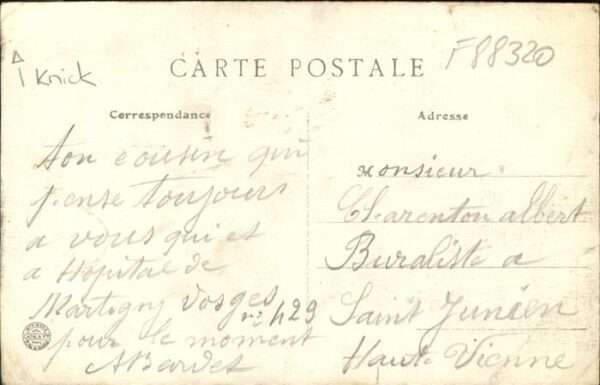 Knick
F88320
CARTE POSTALE
Correspondance
Adresse
ton cousin qui
pense toujours
a vous qui et
a Hôpital de
Martigny Vosges
n° 429
pour le moment
ABardet
Monsieur
Charenton albert
Buraliste a
Saint Junien
Haute Vienne